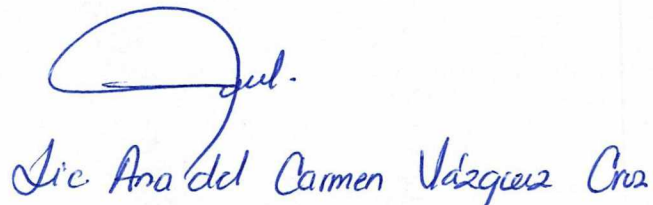 Lic Ana del Carmen Vázquez Cruz